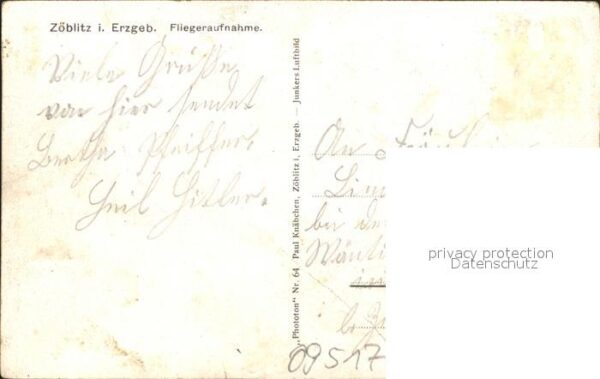 Zöblitz i. Erzgeb. Fliegeraufnahme.
Viele Grüße
von hier sendet
Bertha Pfeiffer.
Heil Hitler.
„Phototon" Nr. 64 Paul Knäbchen, Zöblitz i. Erzgeb. — Junkers Luftbild
An
bei
09517
privacy protection
Datenschutz